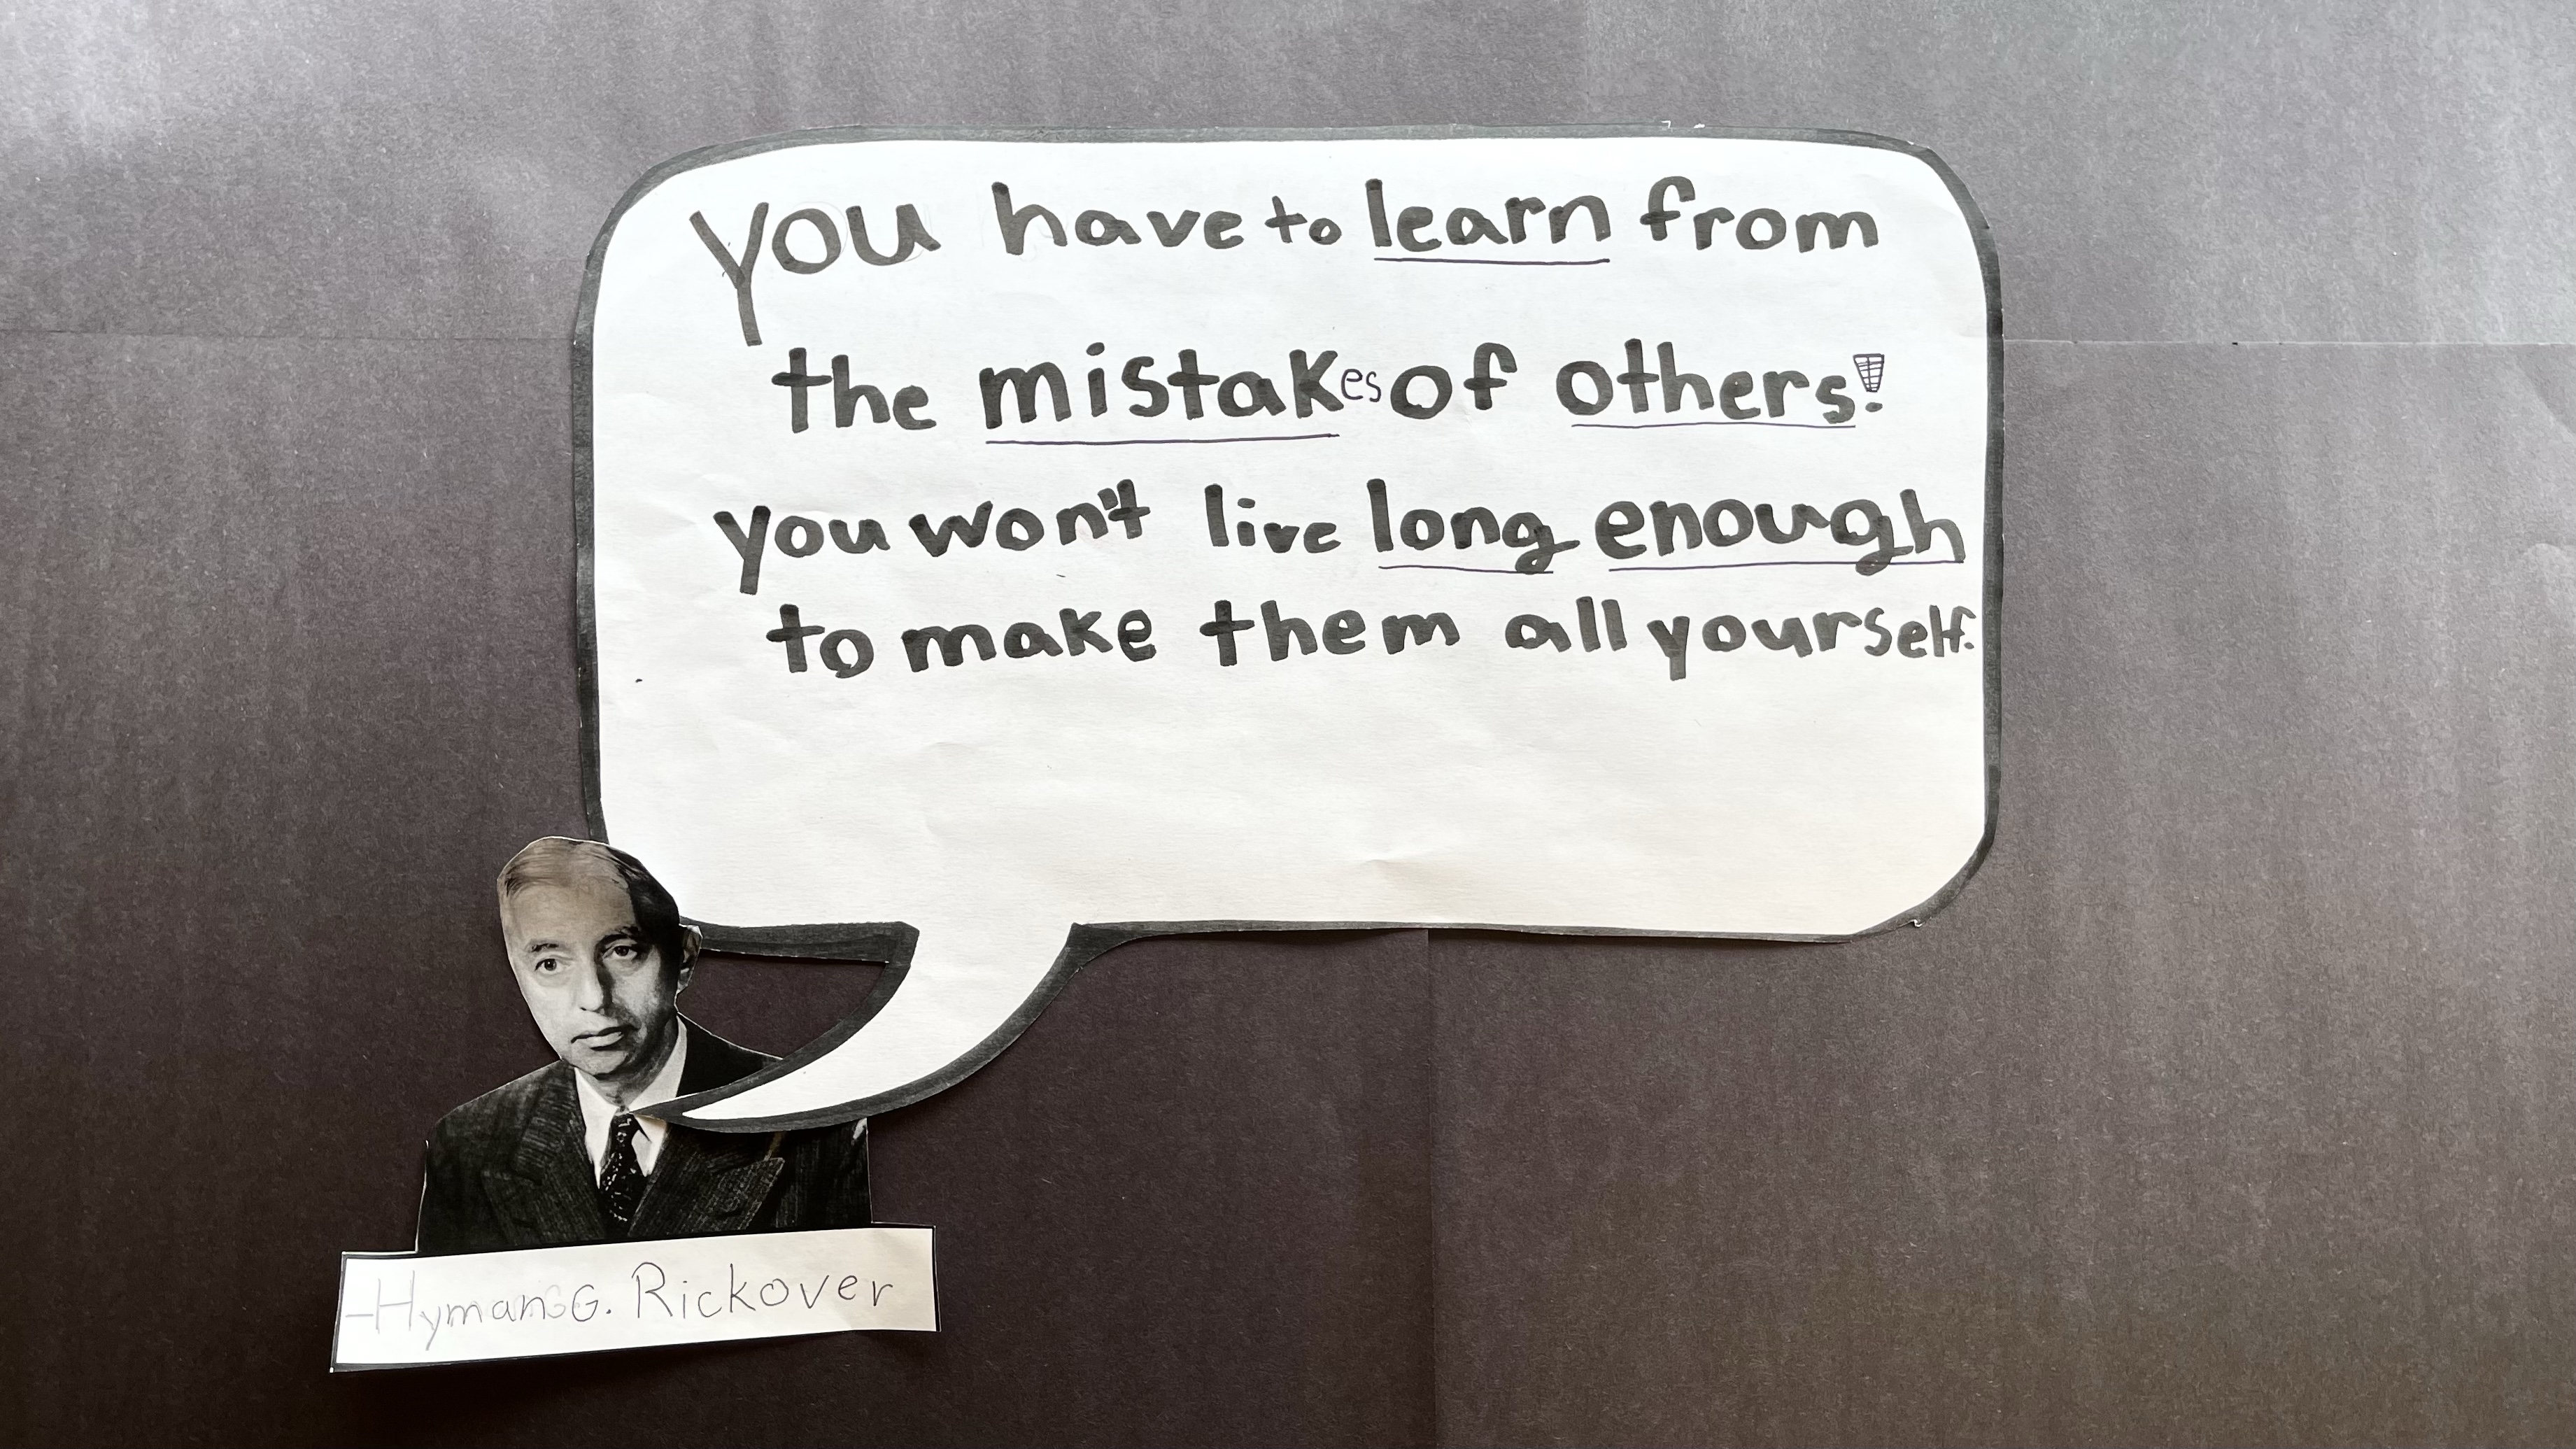 you have to learn from
the mistakes of others!
you won't live long enough
to make them all yourself.
-Hyman G. Rickover